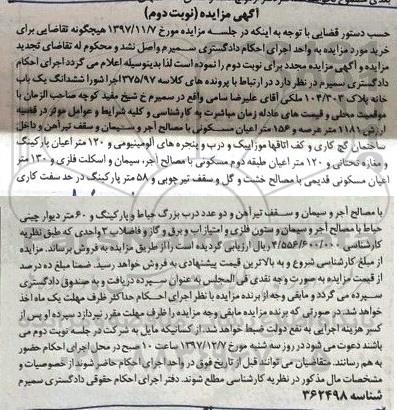 آگهی مزایده (نوبت دوم)
حسب دستور قضایی با توجه به اینکه در جلسه مزایده مورخ ۱۳۹۷/۱۱/۷ هیچگونه تقاضایی برای
خرید مورد مزایده به واحد اجرای احکام دادگستری سمیرم واصل نشد و محکوم له تقاضای تجدید
مزایده و آگهی مزایده مجدد برای نوبت دوم را نموده است لذا بدینوسیله اعلام می گردد اجرای احکام
دادگستری سمیرم در نظر دارد در ارتباط با پرونده های کلاسه ۳۷۵/۹۷ اجرا شورا ششدانگ یک باب
خانه پلاک ۱۰۴/۳۰۳ ملکی آقای علیرضا سامی واقع در سمیرم خ شیخ مفید کوچه صاحب الزمان با
موقعیت محلی و قیمت های عادله زمان مباشرت به کارشناسی و کلیه شرایط و عوامل موثر در قضیه
ارزش ۱۱۸۱ متر عرصه و ۱۵۶ متر اعیان مسکونی با مصالح آجر و سیمان و سقف تیرآهن و داخل
ساختمان گچ کاری و کف اتاقها موزاییک و درب و پنجره های آلومینیومی و ۱۲۰ متر اعیان پارکینگ
و مغازه تحتانی و ۱۲۰ متر اعیان طبقه دوم مسکونی با مصالح آجر، سیمان و اسکلت فلزی و ۱۳۰ متر
اعیان مسکونی قدیمی با مصالح خشت و گل و سقف تیر چوبی و ۵۸ متر پارکینگ در حد سفت کاری
با مصالح آجر و سیمان و سقف تیرآهن و دو عدد درب بزرگ حیاط و پارکینگ و ۶۰ متر دیوار چینی
حیاط با مصالح آجر و سیمان و ستون فلزی و امتیاز آب و برق و گاز و فاضلاب ۳ واحدی که طبق نظریه
کارشناسی ۴/۵۵۶/۶۰۰/۰۰۰ ریال ارزیابی گردیده است را از طریق مزایده به فروش برساند. مزایده
از مبلغ کارشناسی شروع و به بالاترین قیمت پیشنهادی به فروش خواهد رسید. ضمنا مبلغ ده درصد
از قیمت مزایده به صورت وجه نقدی فی المجلس به عنوان سپرده دریافت و به صندوق دادگستری
سپرده می گردد و مابقی وجه از برنده مزایده با نظر اجرای احکام حداکثر ظرف مهلت یک ماه اخذ
خواهد شد. در صورتی که برنده مزایده مابقی وجه مزایده را ظرف مهلت مقرر نپردازد سپرده او پس از
کسر هزینه اجرایی به نفع دولت ضبط خواهد شد. از کسانیکه مایل به شرکت در جلسه نوبت دوم می
باشند دعوت می شود در روز سه شنبه مورخ ۱۳۹۷/۱۲/۷ ساعت ۱۰ صبح در محل اجرای احکام حضور
به هم رسانند. متقاضیان می توانند قبل از تاریخ فوق در واحد اجرای احکام حاضر شوند از خصوصیات و
مشخصات مال مذکور در نظریه کارشناسی مطلع شوند. دفتر اجرای احکام حقوقی دادگستری سمیرم
شناسه ۳۶۲۴۹۸